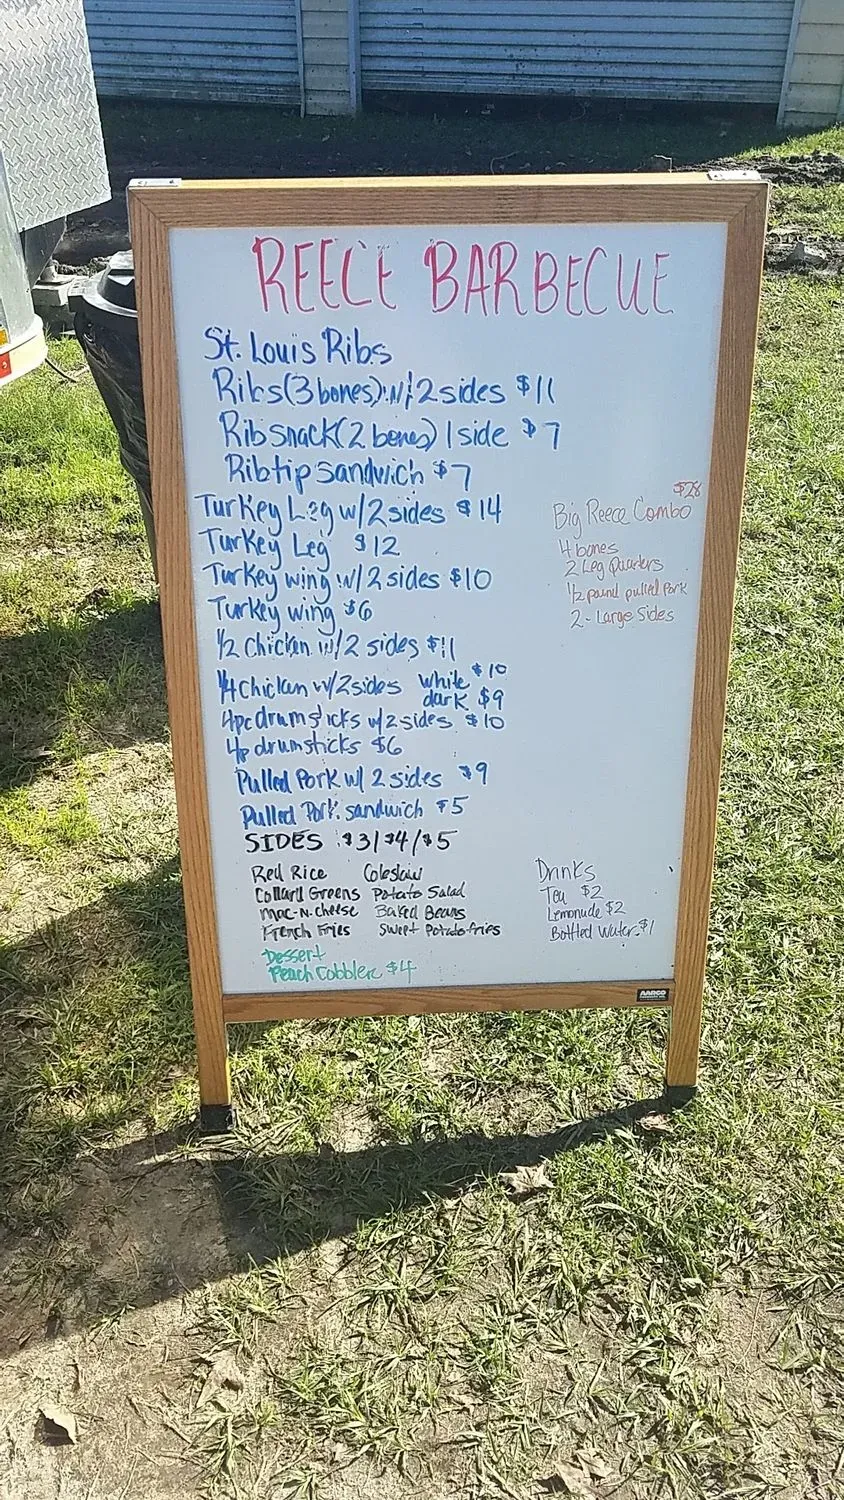 REECE BARBECUE
St. Louis Ribs
Ribs (3 bones) w/ 2 sides $11
Rib snack (2 bones) 1 side $7
Rib tip sandwich $7
Turkey Leg w/ 2 sides $14
Turkey Leg $12
Turkey wing w/ 2 sides $10
Turkey wing $6
1/2 Chicken w/ 2 sides $11
1/4 Chicken w/ 2 sides white $10
dark $9
4pc drumsticks w/ 2 sides $10
4p drumsticks $6
Pulled Pork w/ 2 sides $9
Pulled Pork sandwich $5
SIDES $3/$4/$5
Red Rice Coleslaw
Collard Greens Potato Salad
Mac-N-cheese Baked Beans
French Fries Sweet Potato fries
Dessert
Peach Cobbler $4
$28
Big Reece Combo
4 bones
2 Leg Quarters
1/2 pound pulled Pork
2 - Large Sides
Drinks
Tea $2
Lemonade $2
Bottled Water $1
AARCO